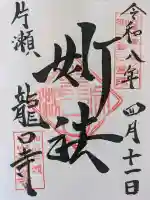 令和八年四月十一日
妙法
片瀬 龍口寺